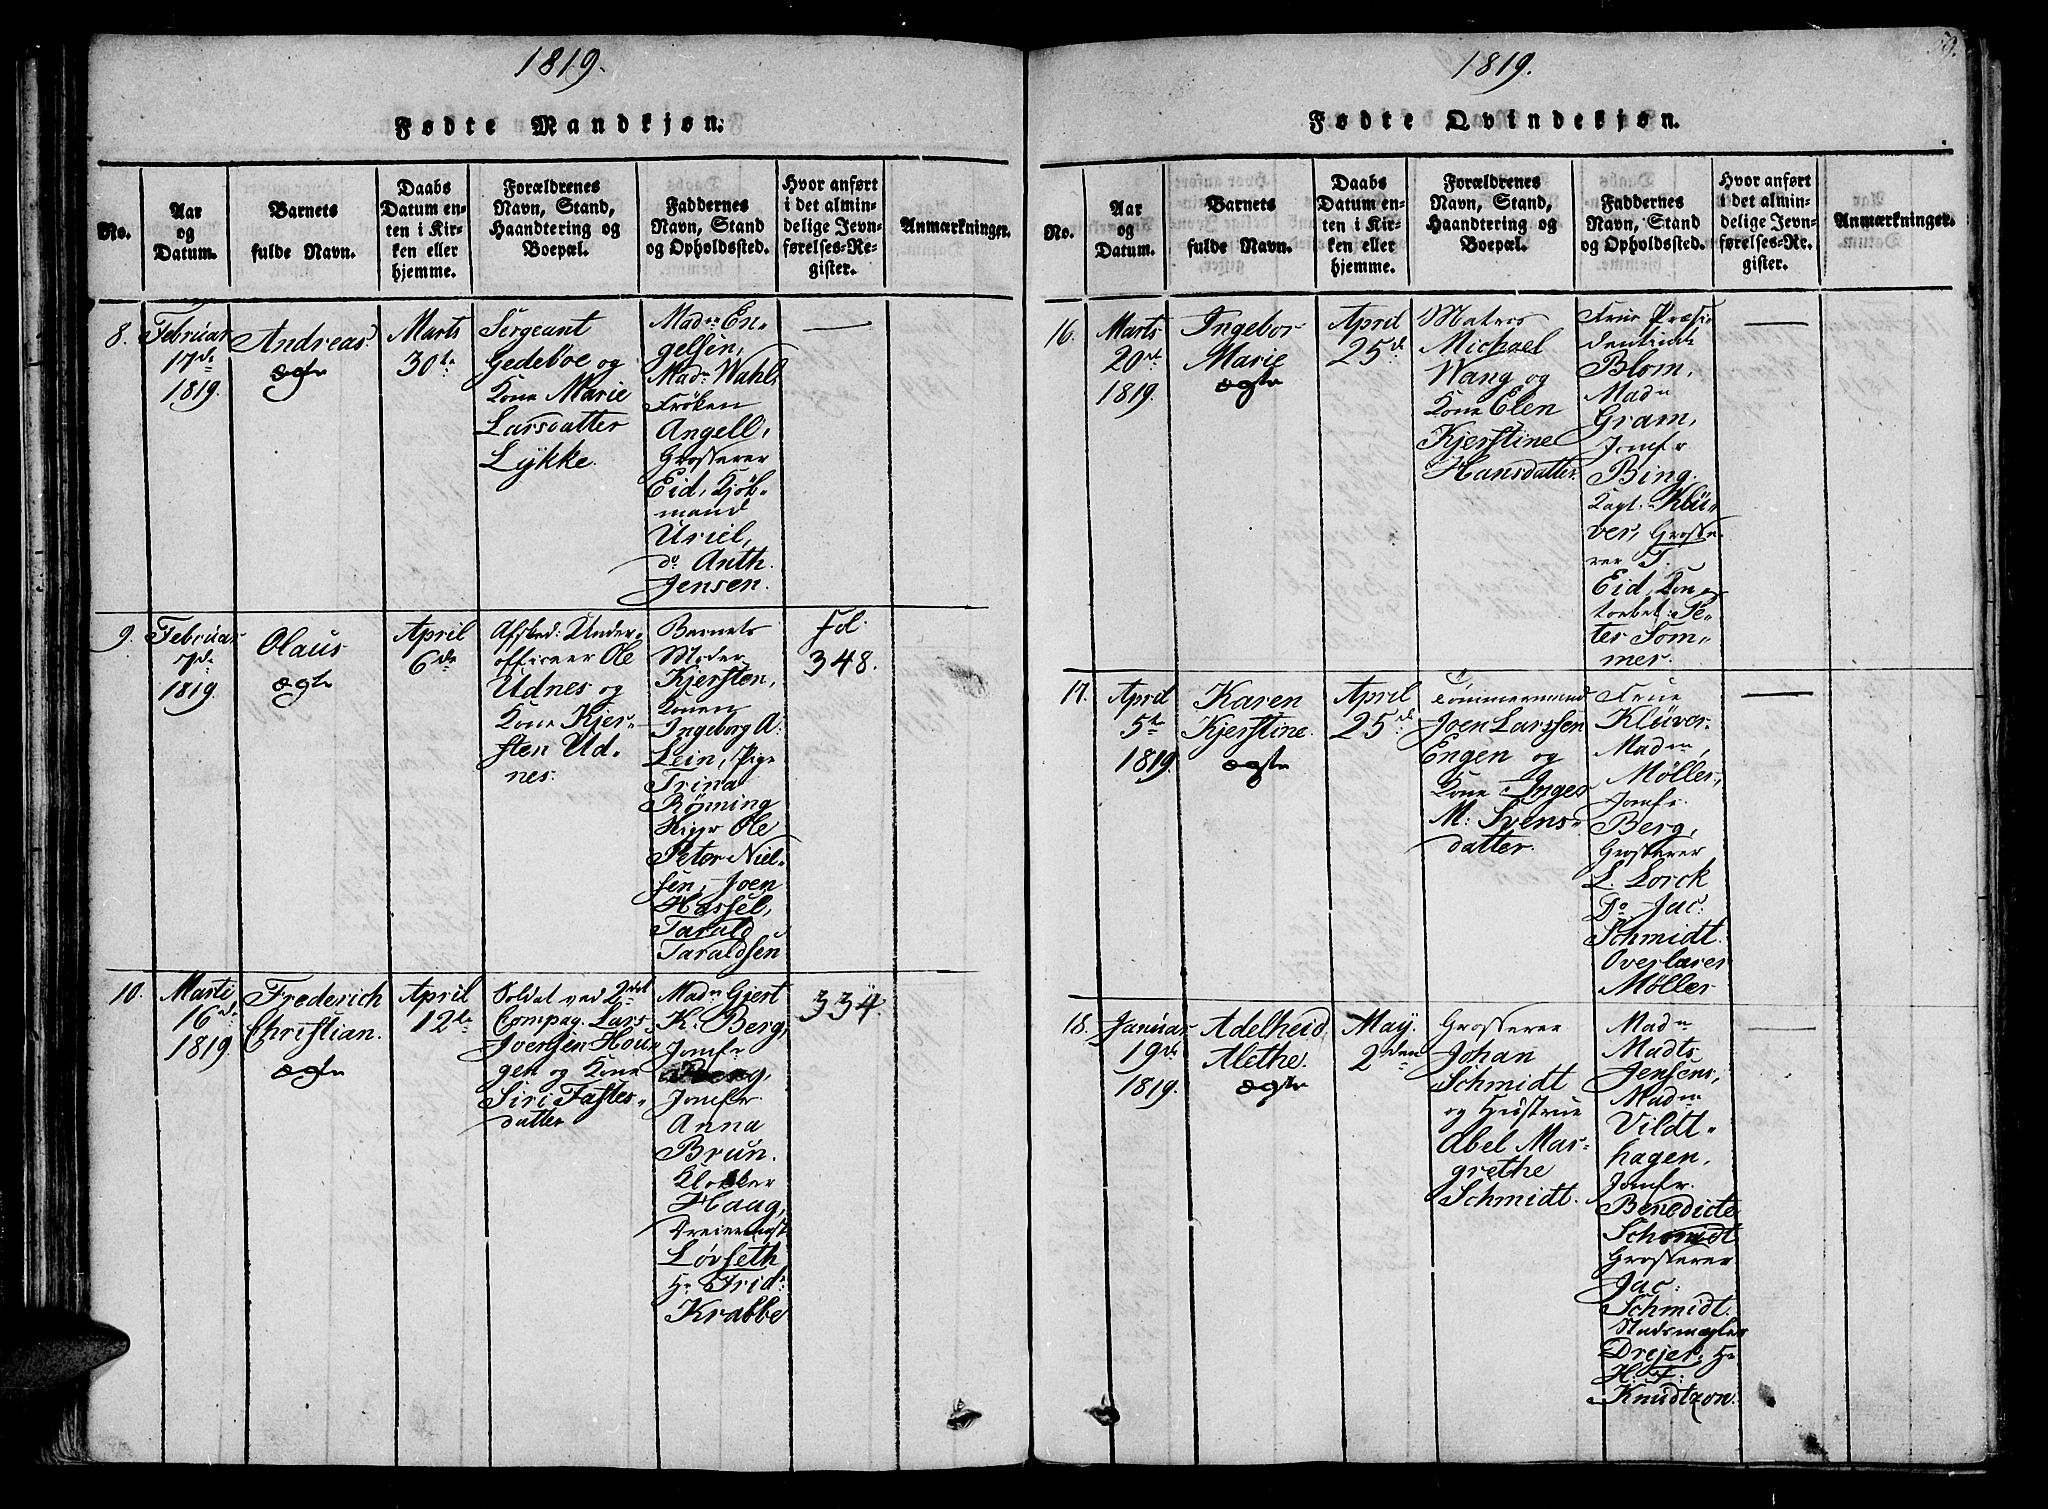 1819.
Fødte Mandkjøn.
No.
Aar
og
Datum.
Barnets
fulde Navn.
Daabs
Datum en-
ten i Kir-
ken eller
hjemme.
Forældrenes
Navn, Stand,
Haandtering og
Boepæl.
Faddernes
Navn, Stand
og Opholdssted.
Hvor anført
i det almin-
delige Jevn-
førelses-Re-
gister.
Anmærkninger.
8.
Februar
17de
1819.
Andreas.
ægte
Marts
30te
Sergeant
Gedeboe og
Kone Marie
Larsdatter
Lykke.
Madm En-
gelsen,
Madm Wahl,
Frøken
Angell,
Grosserer
Eid, Kjøb-
mand
Uriel,
do Anth.
Jensen.
9.
Februar
7de
1819.
Olaus
ægte
April
6de
Afsked: Under-
officeer Ole
Udnes og
Kone Kjer-
sten Ud-
nes.
Barnets
Moder
Kjersten,
Konen
Ingeborg A:
Lein, Pige
Trina
Rønning
Ole
Peter Niel-
sen, Joen
Hassel,
Tarald
Taraldsen
Fol.
348.
10.
Marti
16de
1819.
Frederich
Christian.
ægte
April
12te
Soldat ved 2det
Compag. Lars
Iversen Hou-
gen og Kone
Siri Fastes-
datter
Madm Gjert
K. Berg,
Jomfr
Berg,
Jomfr.
Anna
Brun.
Klokker
Haag,
Løvseth
Hr Frid:
Krabbe
334.
1819.
59.
Fødte Qvindekjøn.
No.
Aar
og
Datum.
Barnets
fulde Navn.
Daabs
Datum en-
ten i Kir-
ken eller
hjemme.
Forældrenes
Navn, Stand,
Haandtering og
Boepæl.
Faddernes
Navn, Stand
og Opholdssted.
Hvor anført
i det almin-
delige Jevn-
førelses-Re-
gister.
Anmærkninger.
16.
Marts
20de
1819.
Ingebor
Marie
ægte
April
25de
Matros
Michael
Wang og
Kone Elen
Kjerstine
Hansdatter.
Frue Præsi-
dentinde
Blom,
Madm
Gram,
Jomfr
Bing.
Capt. Klü-
ver, Grosse-
rer T.
Eid, Kon-
torbet: Pe-
ter Som-
mer.
17.
April
5te
1819.
Karen
Kjerstine.
ægte
April
25de
Tømmermand
Joen Larssen
Engen og
Kone Inger
M: Svens-
datter.
Frue
Klüver.
Madm
Møller,
Jomfr.
Berg,
Grosserer
L. Lorck
Do Jac:
Schmidt.
Overlærer
Møller
18.
Januar
19de
1819.
Adelheid
Alethe.
ægte
May.
2den
Grosserer
Johan
Schmidt
og Hustrue
Abel Mar-
grethe
Schmidt.
Madm
Madts
Jensens,
Madm
Vildt-
hagen,
Jomfr.
Benedicte
Schmidt
Grosserer
Jac:
Schmidt.
Stadsmægler
Drejer, Hr
H: F:
Knudtzon.